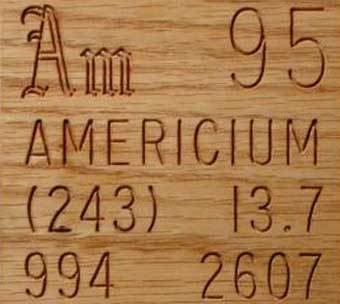 Am 95
AMERICIUM
(243) 13.7
994 2607